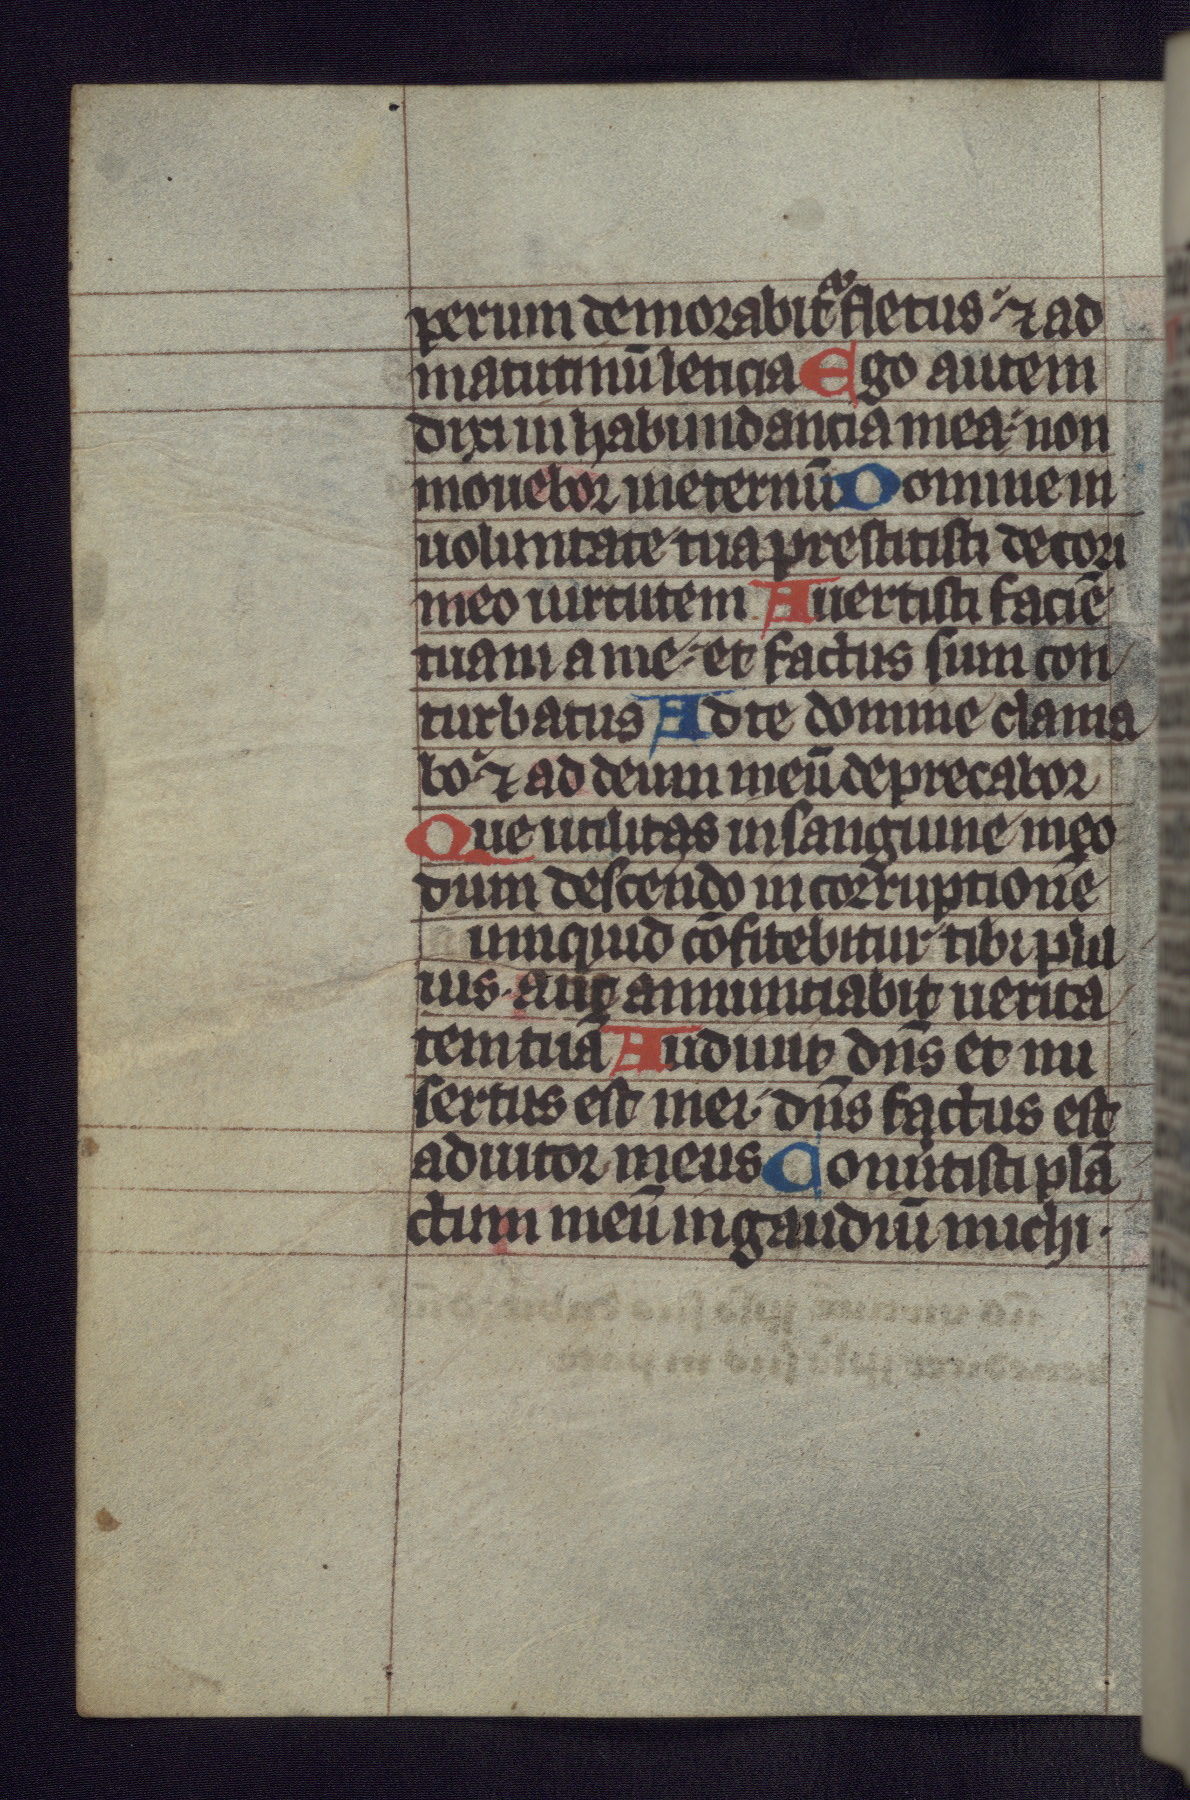 perum demorabit᷑ fletus ⁊ ad
matutinū leticia Ego autem
dixi in habundancia mea non
mouebor in eternū Domine in
uoluntate tua prestitisti decori
meo uirtutem Auertisti faciē
tuam a me et factus sum con
turbatus Ad te domine clama
bo ⁊ ad deum meū deprecabor
Que utilitas in sanguine meo
dum descendo in corruptionē
umquid cōfitebitur tibi pul
uis aut annunciabit uerita
tem tuā Audiuit dn̄s et mi
sertus est mei dn̄s factus est
adiutor meus Conuertisti plā
ctum meū in gaudiū michi